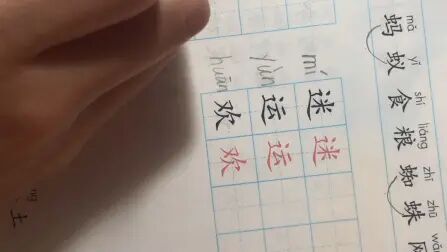 huān yùn mí
欢 运 迷
欢 运 迷
mǎ yǐ shí liáng zhī zhū
蚂 蚁 食 粮 蜘 蛛 网
土